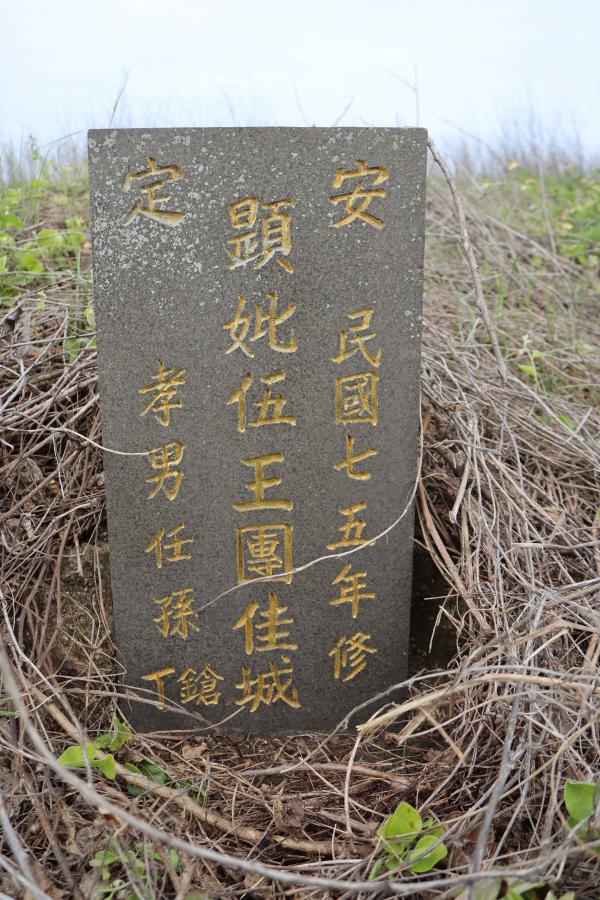 安定
民國七五年修
顕妣伍王團佳城
孝男任孫鎗丁